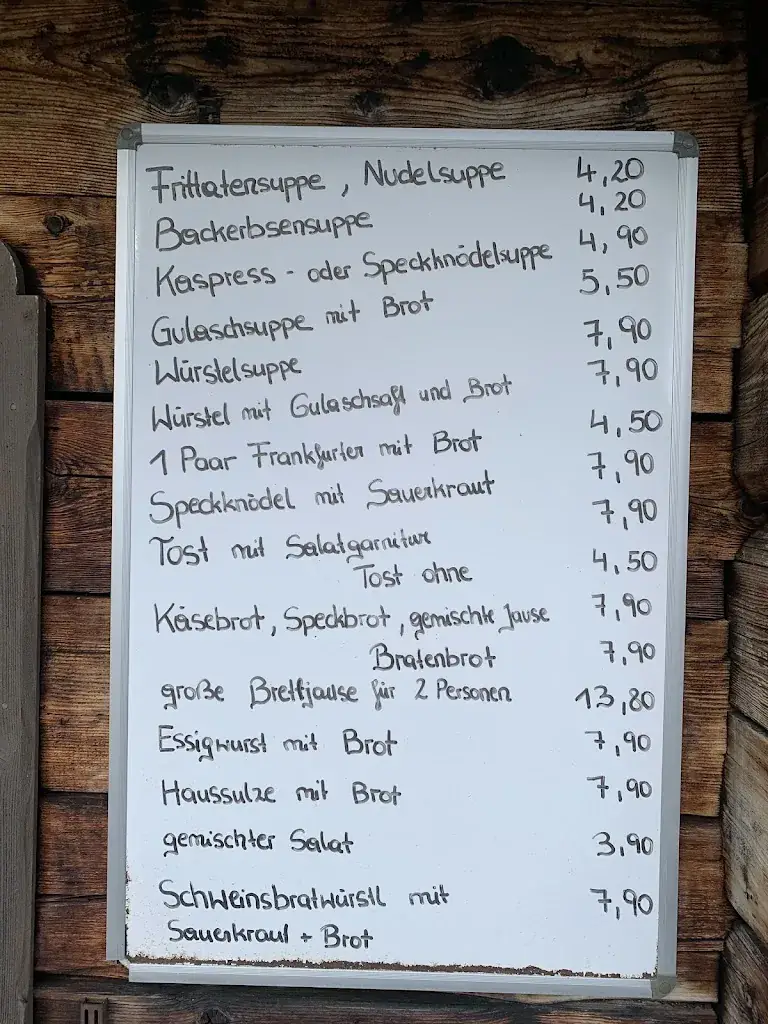 Frittatensuppe, Nudelsuppe 4,20
Backerbsensuppe 4,20
Kaspress- oder Speckknödelsuppe 4,90
Gulaschsuppe mit Brot 5,50
Würstelsuppe 7,90
Würstel mit Gulaschsaft und Brot 7,90
1 Paar Frankfurter mit Brot 4,50
Speckknödel mit Sauerkraut 7,90
Tost mit Salatgarnitur 7,90
Tost ohne 4,50
Käsebrot, Speckbrot, gemischte Jause 7,90
Bratenbrot 7,90
große Brettjause für 2 Personen 13,80
Essigwurst mit Brot 7,90
Haussulze mit Brot 7,90
gemischter Salat 3,90
Schweinsbratwürstl mit 7,90
Sauerkraut + Brot